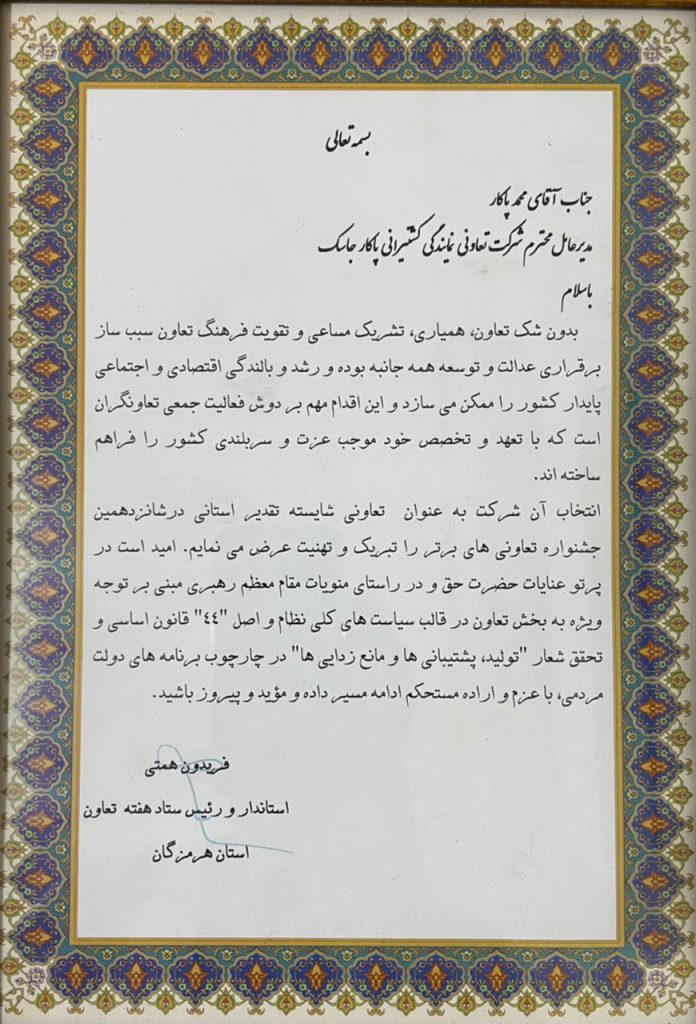 بسمه تعالی
جناب آقای محمد پاکار
مدیرعامل محترم شرکت تعاونی نمایندگی کشتیرانی پاکار جاسک
باسلام
بدون شک تعاون، همیاری، تشریک مساعی و تقویت فرهنگ تعاون سبب ساز
برقراری عدالت و توسعه همه جانبه بوده و رشد و بالندگی اقتصادی و اجتماعی
پایدار کشور را ممکن می سازد و این اقدام مهم بر دوش فعالیت جمعی تعاونگران
است که با تعهد و تخصص خود موجب عزت و سربلندی کشور را فراهم
ساخته اند.
انتخاب آن شرکت به عنوان تعاونی شایسته تقدیر استانی درشانزدهمین
جشنواره تعاونی های برتر را تبریک و تهنیت عرض می نمایم. امید است در
پرتو عنایات حضرت حق و در راستای منویات مقام معظم رهبری مبنی بر توجه
ویژه به بخش تعاون در قالب سیاست های کلی نظام و اصل "٤٤" قانون اساسی و
تحقق شعار "تولید، پشتیبانی ها و مانع زدایی ها" در چارچوب برنامه های دولت
مردمی، با عزم و اراده مستحکم ادامه مسیر داده و مؤید و پیروز باشید.
فریدون همتی
استاندار و رئیس ستاد هفته تعاون
استان هرمزگان